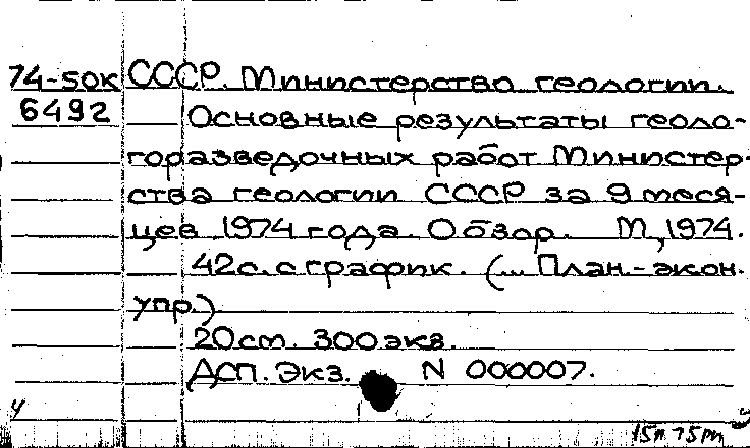 74-50к СССР. Министерство геологии.
6492 Основные результаты геоло-
горазведочных работ Министер-
ства геологии СССР за 9 меся-
цев 1974 года. Обзор. М, 1974.
42с. с график. (... План.-экон.
упр.)
20 см. 300 экз.
ДСП. Экз. N 000007.